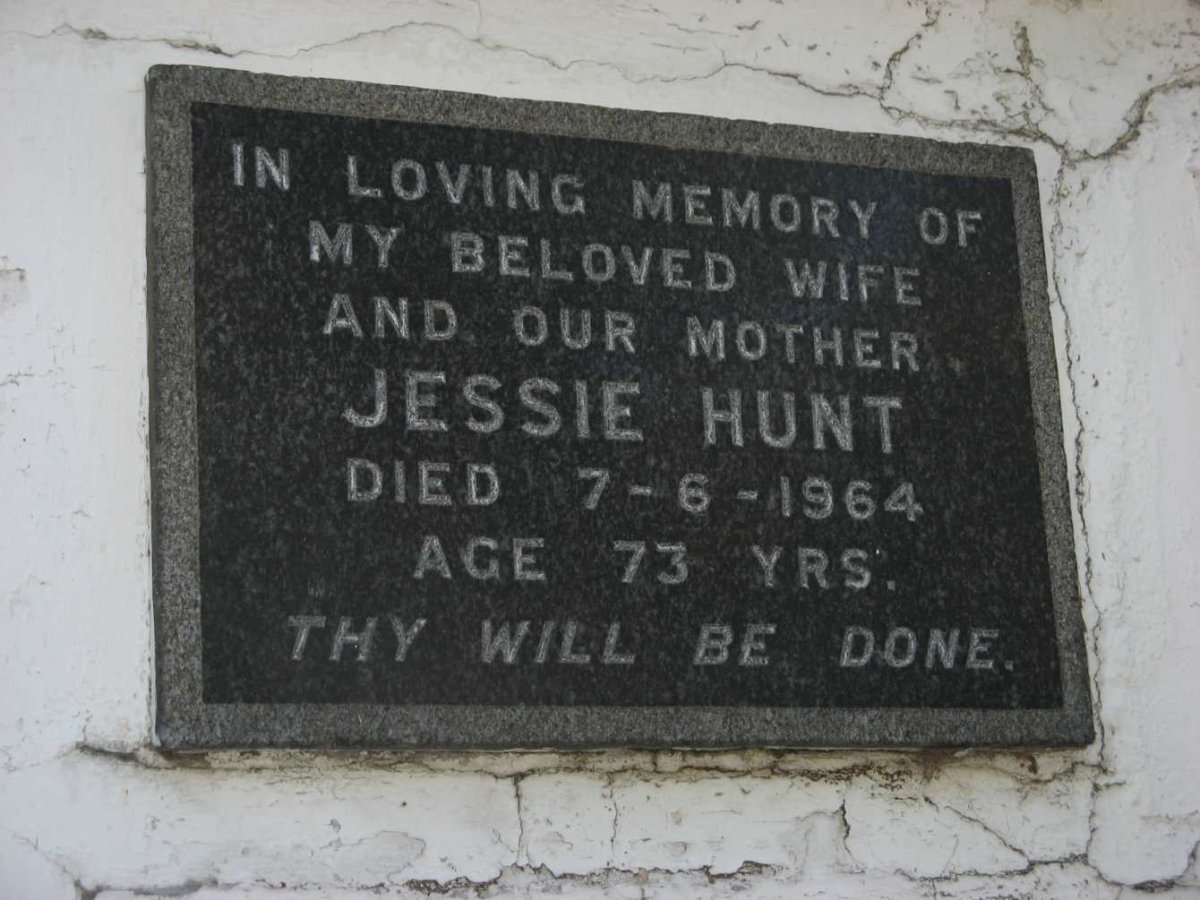 IN LOVING MEMORY OF
MY BELOVED WIFE
AND OUR MOTHER
JESSIE HUNT
DIED 7-6-1964
AGE 73 YRS.
THY WILL BE DONE.